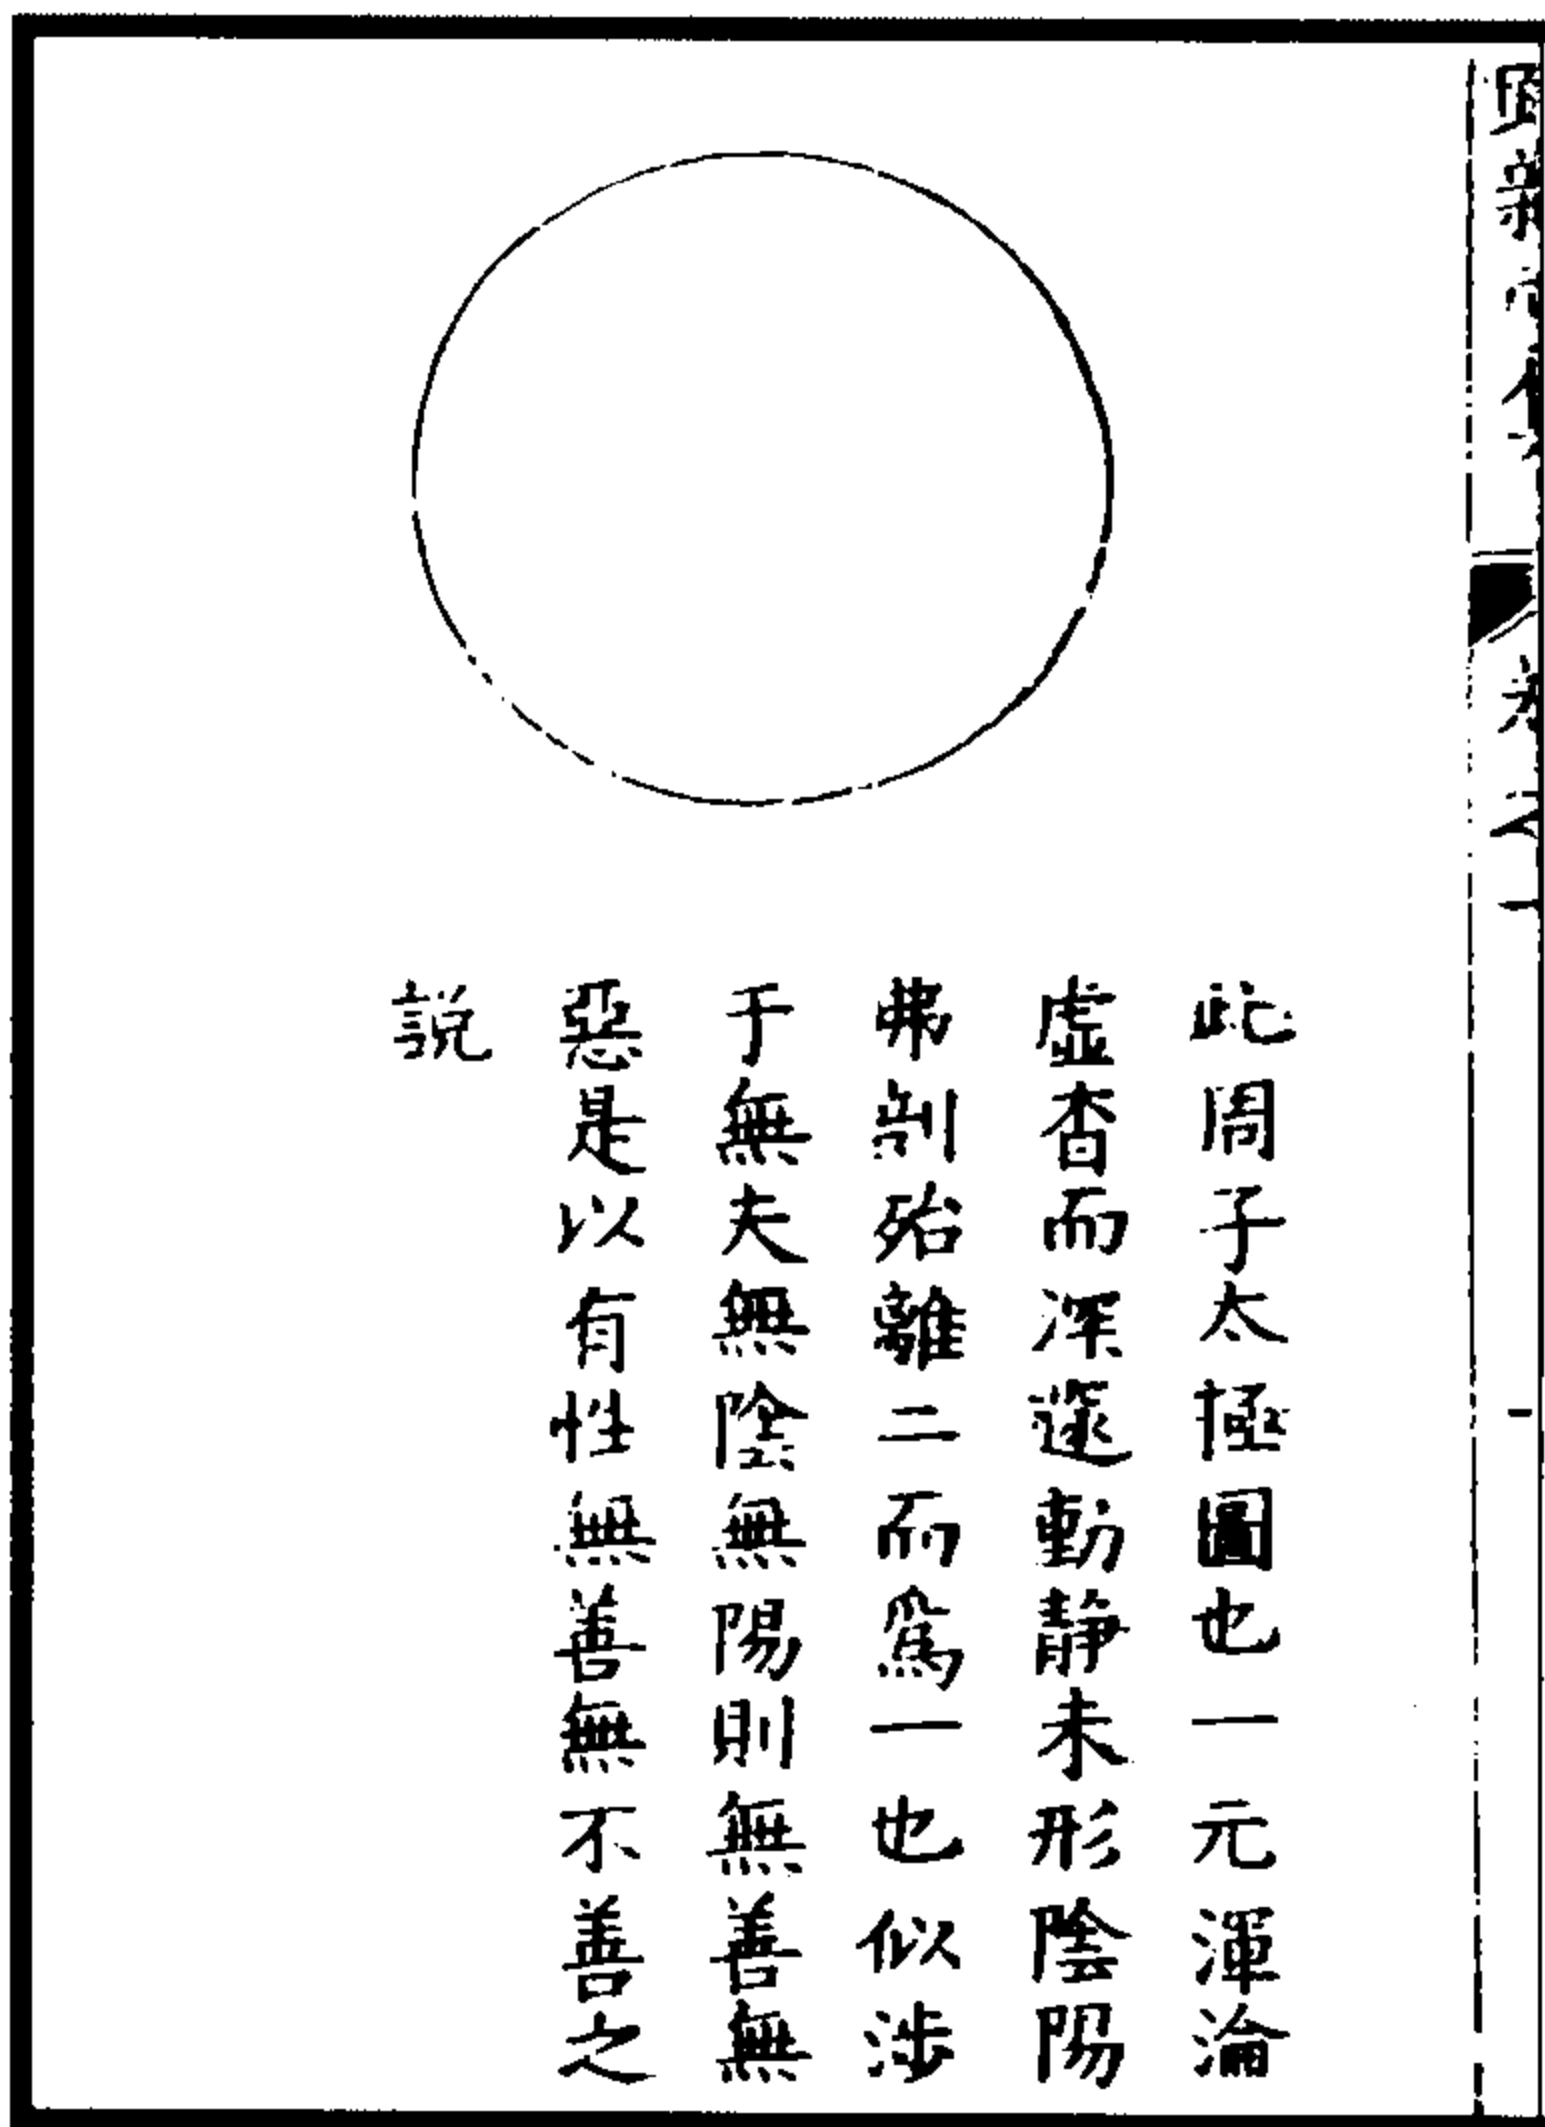 此周子太極圖也一元渾淪
虛杳而深遠動靜未形陰陽
弗剖殆離二而爲一也似涉
于無夫無陰無陽則無善無
惡是以有性無善無不善之
說
卷之一